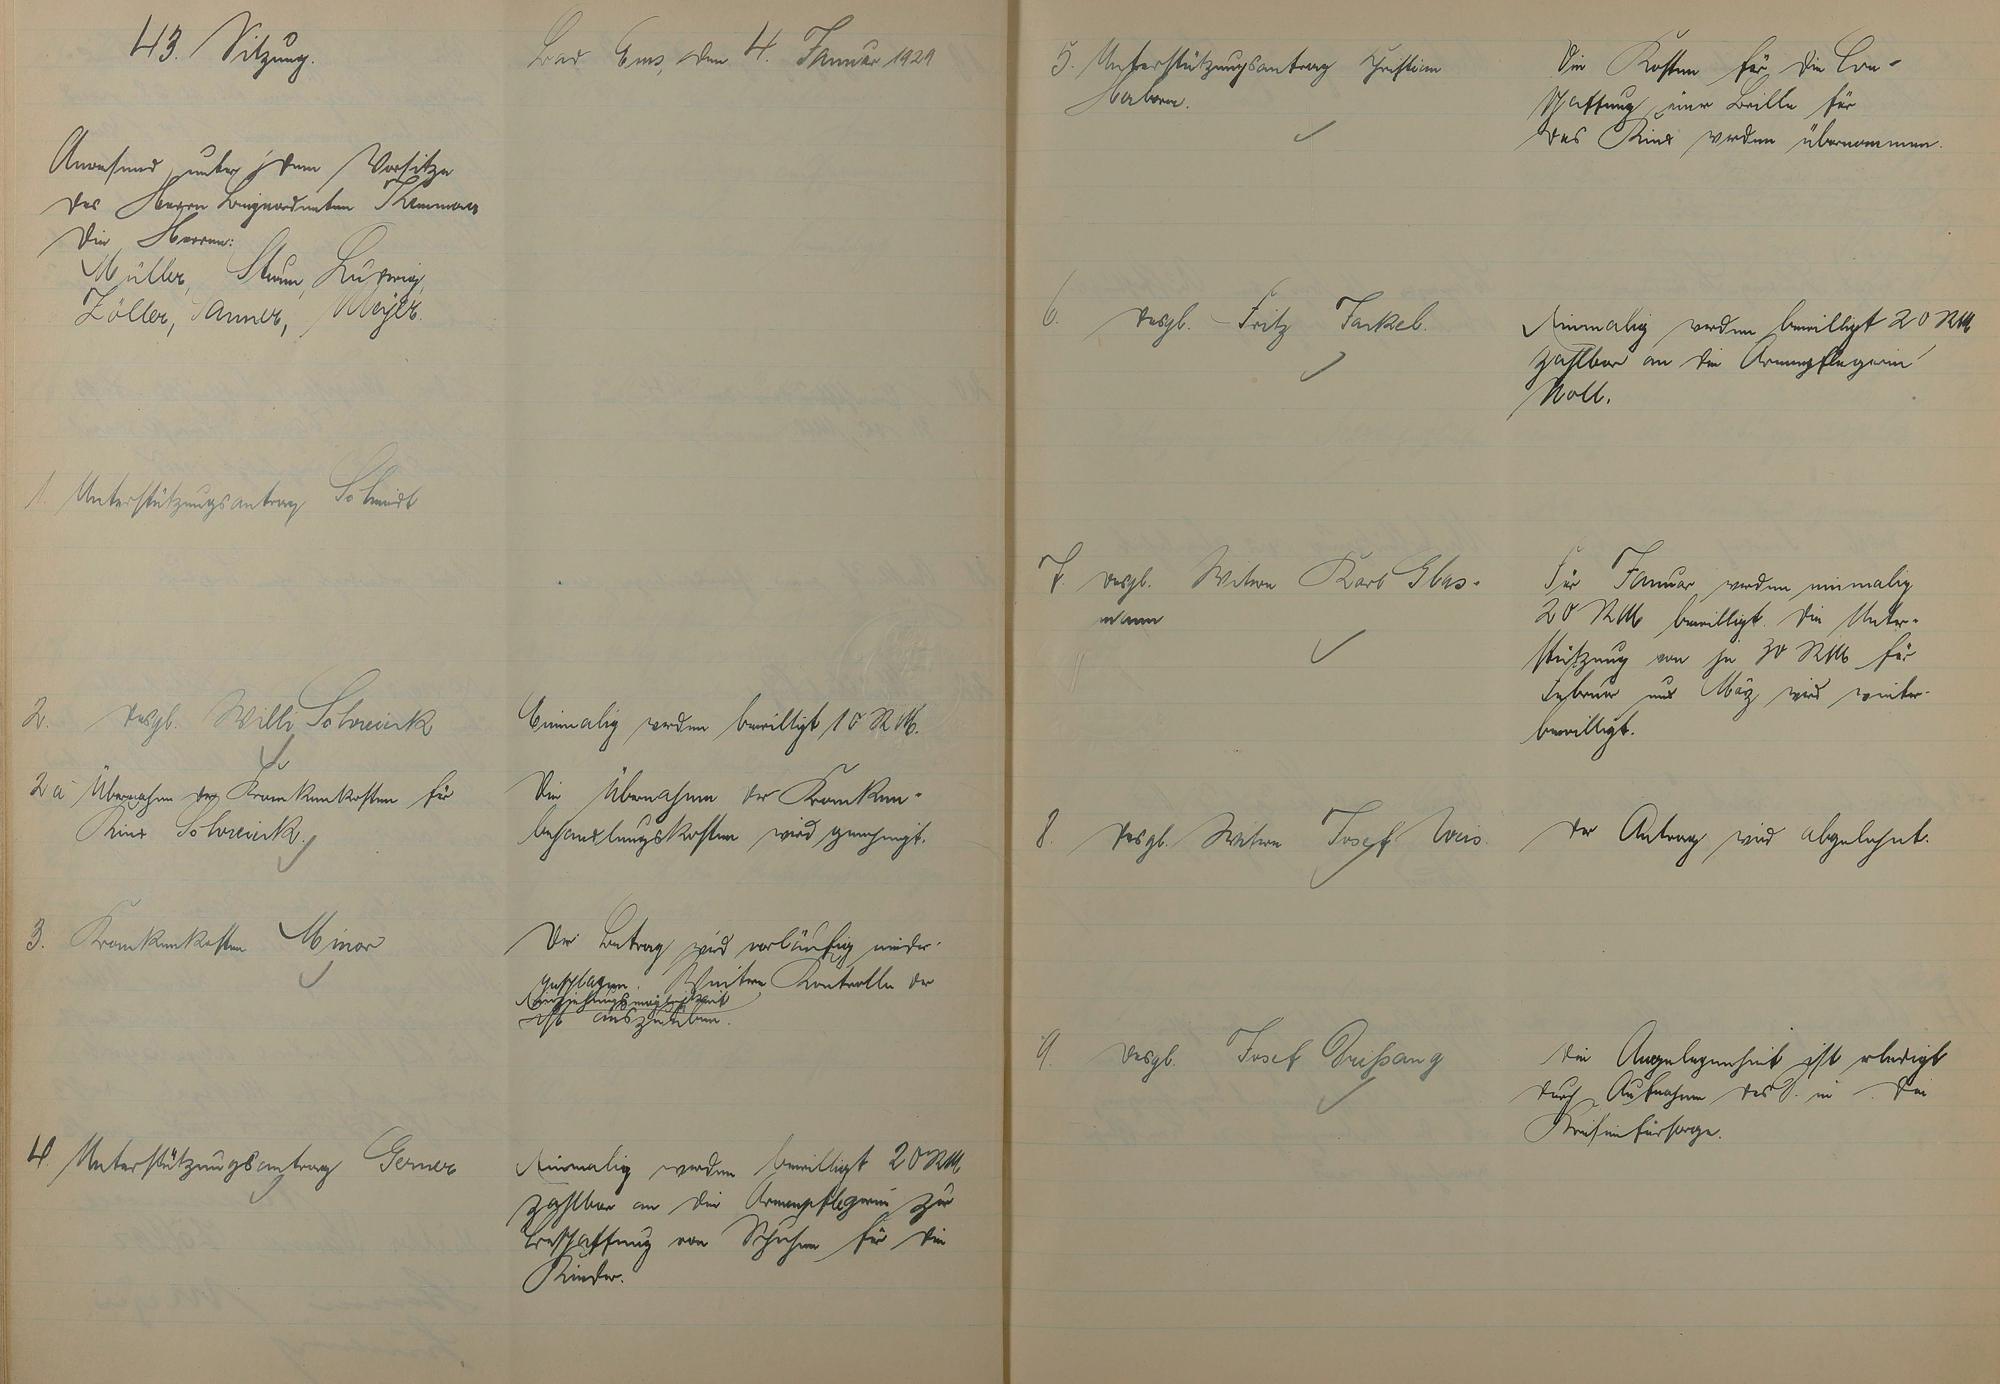 43. Sitzung.
Bad Ems, den 4. Januar 1929
Anwesend unter dem Vorsitze
des Herrn Beigeordneten
die Herren:
Müller, Sturm, Ludwig,
Zöller, Sanner, Meyer.
1. Unterstützungsantrag Schmidt
2. desgl. Willi Schreinik
Einmalig werden bewilligt 10 RM.
2a Übernahme der Krankenkosten für
Kind Schreinik.
Die Übernahme der Kranken-
behandlungskosten wird genehmigt.
3. Krankenkosten Minor
Der Betrag wird vorläufig nieder-
geschlagen. Weitere Kontrolle der
Einziehungsmöglichkeit
ist auszuüben.
4. Unterstützungsantrag Gerner
Einmalig werden bewilligt 20 RM
zahlbar an die Armenpflegerin zur
Beschaffung von Schuhen für die
Kinder.
5. Unterstützungsantrag Christian
Die Kosten für die Be-
schaffung einer Brille für
das Kind werden übernommen.
6. desgl. Fritz Fackel.
Einmalig werden bewilligt 20 RM
zahlbar an die Armenpflegerin
Noll.
7. desgl. Witwe Karl Glas-
mann
Für Januar werden einmalig
20 RM bewilligt. Die Unter-
stützung von je 30 RM für
Februar und März wird weiter-
bewilligt.
8. desgl. Witwe Josef Weis.
Der Antrag wird abgelehnt.
9. desgl. Josef Drißang
Die Angelegenheit ist erledigt
durch Aufnahme des D. in die
Krisenfürsorge.